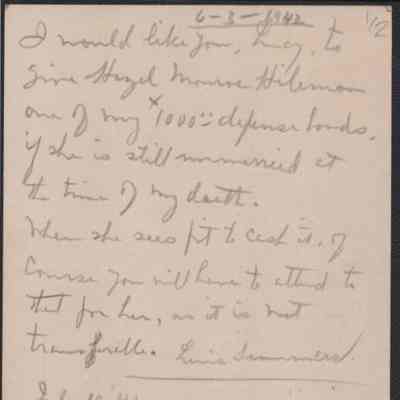 6-3-1942
1/2
I would like you, Lucy, to
give Hazel Monroe Hileman
one of my x 1000.00 defense bonds,
if she is still unmarried at
the time of my death.
When she sees fit to cash it. Of
Course you will have to attend to
that for her, as it is not
transferable. Summers.